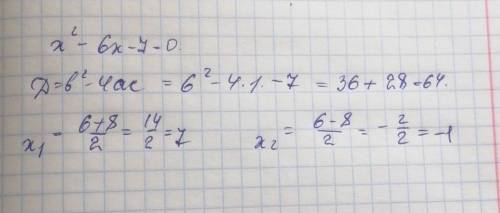 x² - 6x - 7 = 0.
D = b² - 4ac = 6² - 4·1·-7 = 36 + 28 = 64.
x₁ = 6+8/2 = 14/2 = 7 x₂ = 6-8/2 = -2/2 = -1